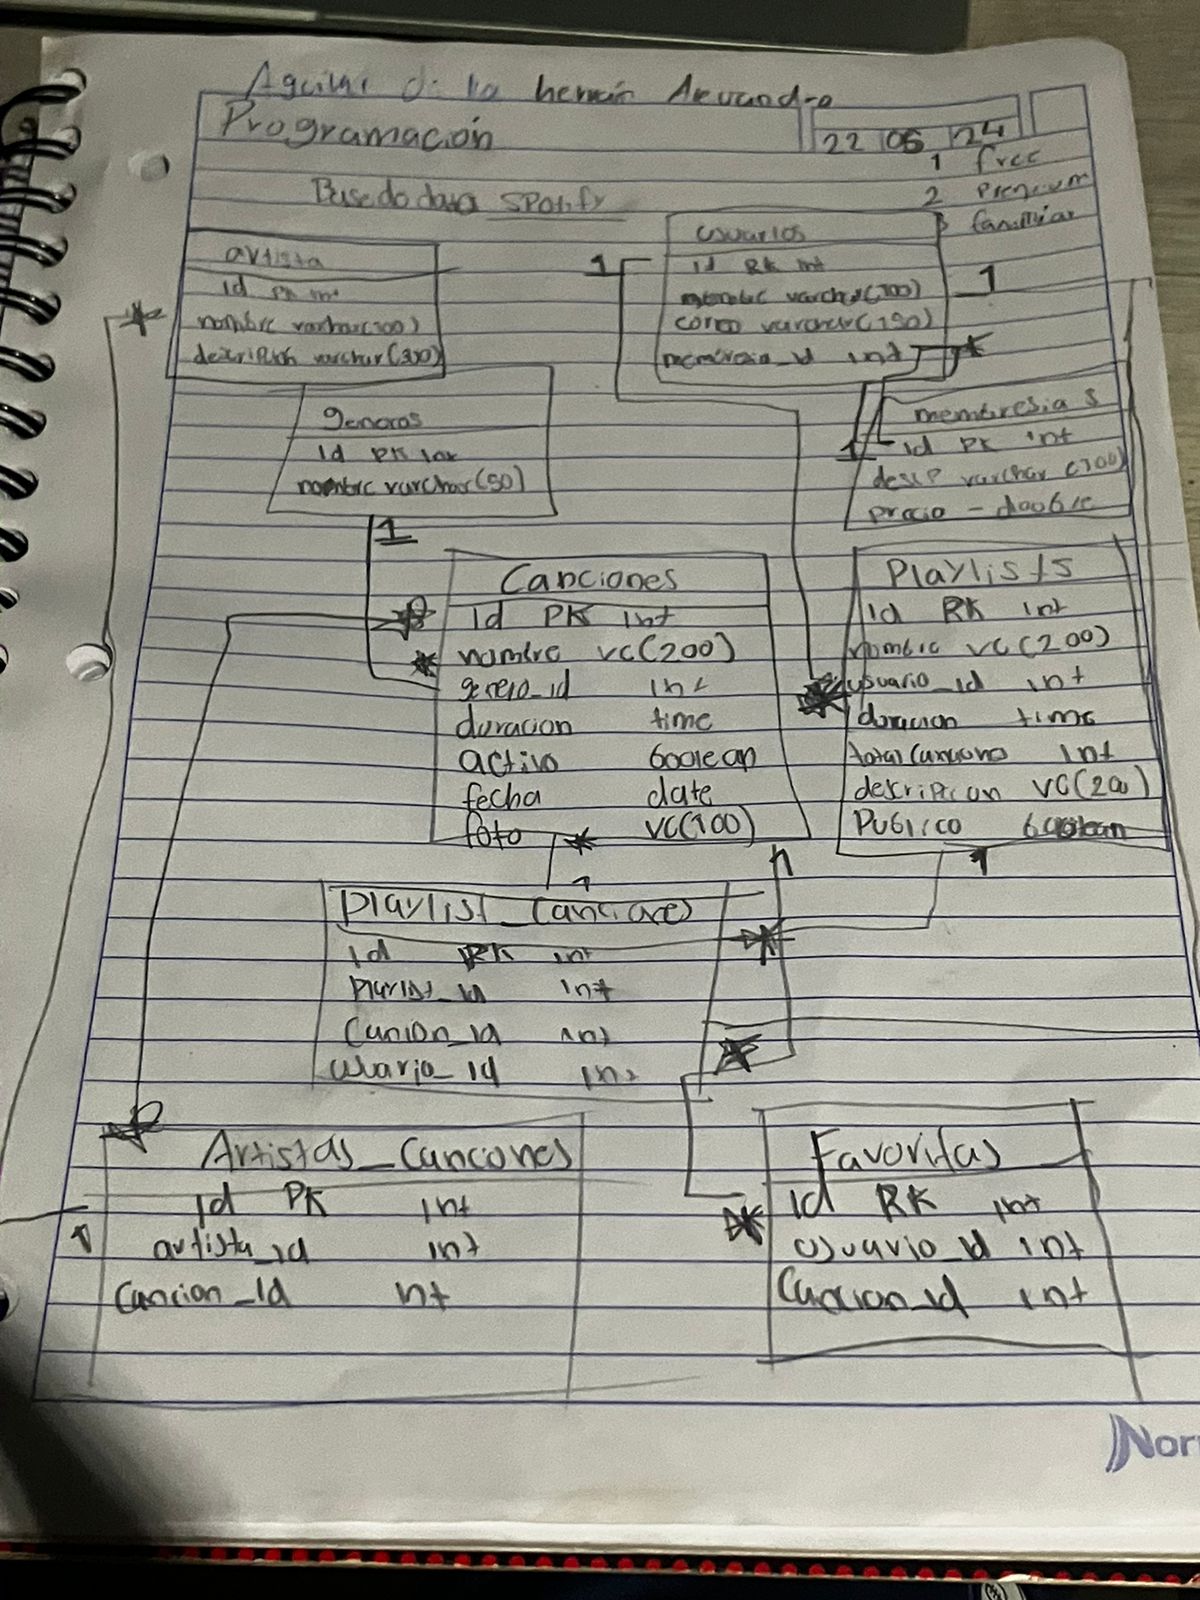 Aguilar de la
Programación
22 05 24
1 free
2 Premium
3 familiar
Base de datos SPotify
artista
id PK int
nombre varchar(100)
descripcion varchar(300)
usuarios
id PK int
nombre varchar(100)
correo varchar(150)
membresia_id int
1
1
*
generos
id PK int
nombre varchar(50)
1
membresias
id PK int
desc varchar(100)
precio - double
1
Canciones
Id PK int
nombre vc(200)
genero_id int
duracion time
activo boolean
fecha date
foto vc(100)
*
Playlists
id PK int
nombre vc(200)
usuario_id int
duracion time
total canciones int
descripcion vc(200)
Publico boolean
1
1
Playlist_Canciones
id PK int
Playlist_id int
Cancion_id int
usuario_id int
Artistas_Canciones
id PK int
artista_id int
Cancion_id int
1
Favoritas
id PK int
usuario_id int
Cancion_id int
Nor